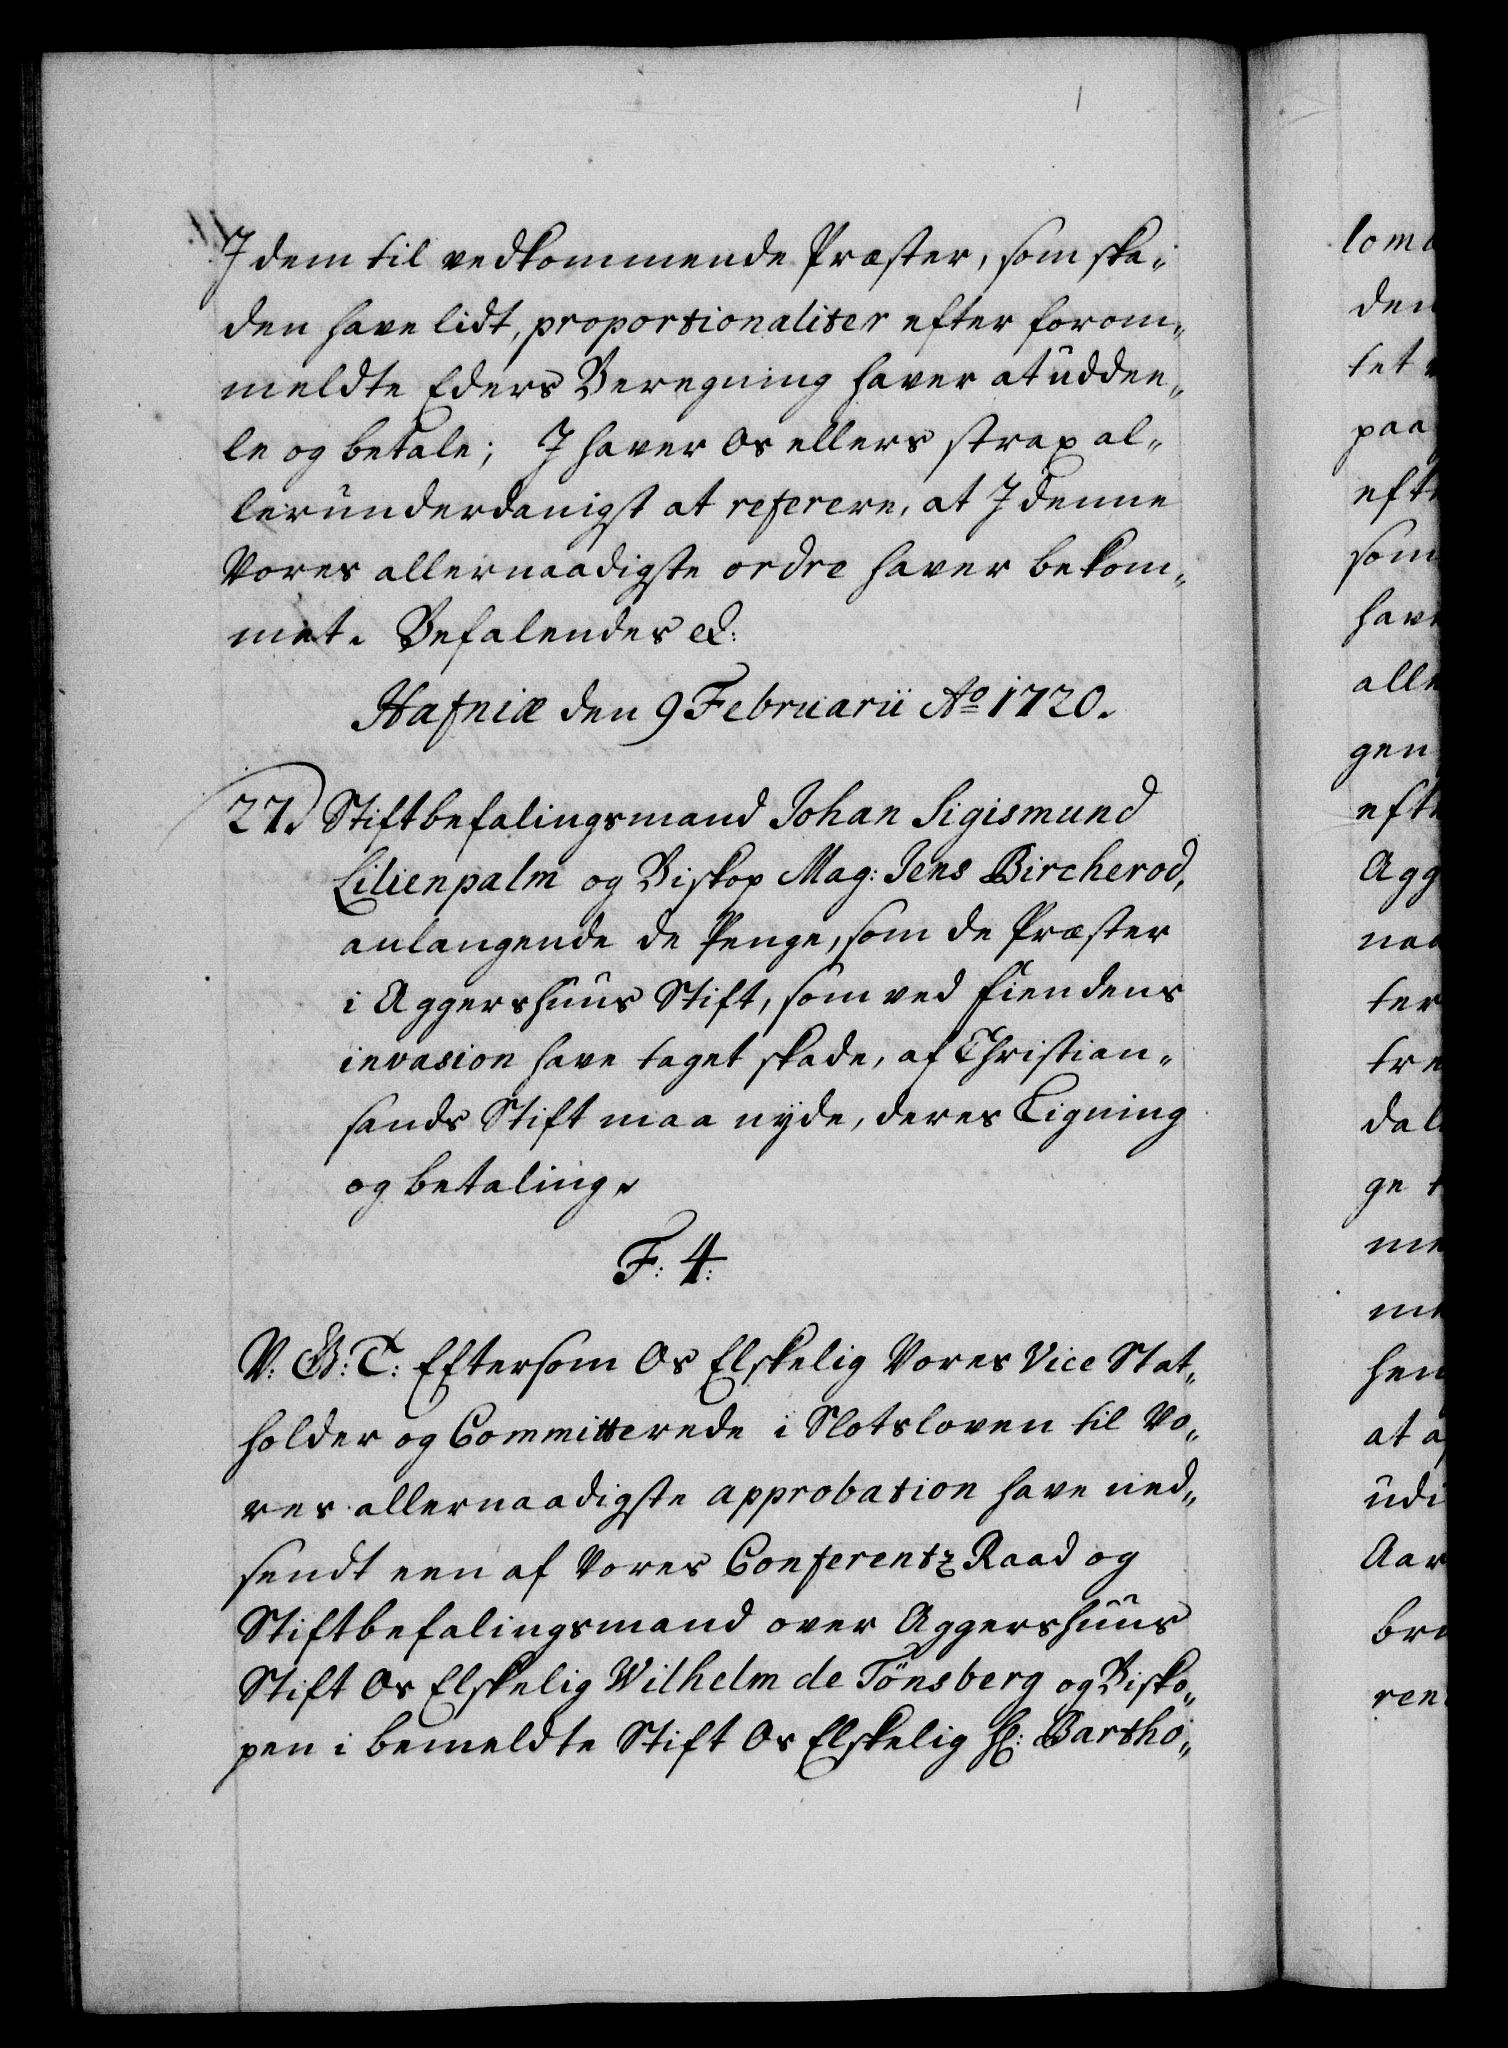 J dem til vedkommende Præster, som ska„
den have lidt, proportionaliter efter forom„
meldte Eders Beregning haver at uddee„
le og betale; J haver Os ellers strax al„
lerunderdanigst at referere, at J denne
Vores allernaadigste ordre haver bekom„
met. Befalendes &:
Hafniæ den 9 Februarii Ao 1720.
27. Stiftbefalingsmand Johan Sigismund
Lilienpalm og Biskop Mag: Jens Bircherod,
anlangende de Penge, som de Præster
i Aggershuus Stift, som ved fiendens
invasion have taget skade, af Christian„
sands Stift maa nyde, deres Ligning
og betaling.
F: 4:
V: G: T: Eftersom Os Elskelig Vores Vice Stat„
holder og Committerede i Slotsloven til Vo„
res allernaadigste approbation have ned„
sendt een af Vores Conferentz Raad og
Stiftbefalingsmand over Aggershuus
Stift Os Elskelig Wilhelm de Tönsberg og Bisko„
pen i bemeldte Stift Os Elskelig Hr: Bartho„